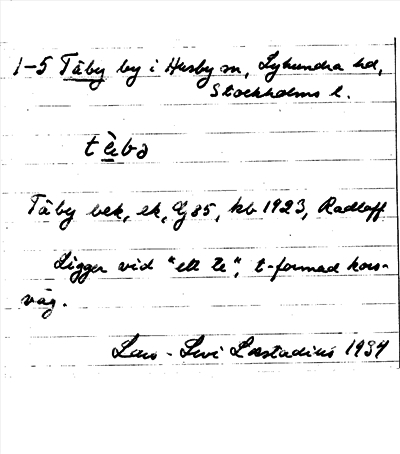 1-5 Täby by i Husby sn, Lyhundra hd,
Stockholms l.
tèba
Täby bek, ek, Gj 85, kb 1923, Radloff
Ligger vid "ett Te", t-formad kors-
väg.
Lars-Levi Læstadius 1934